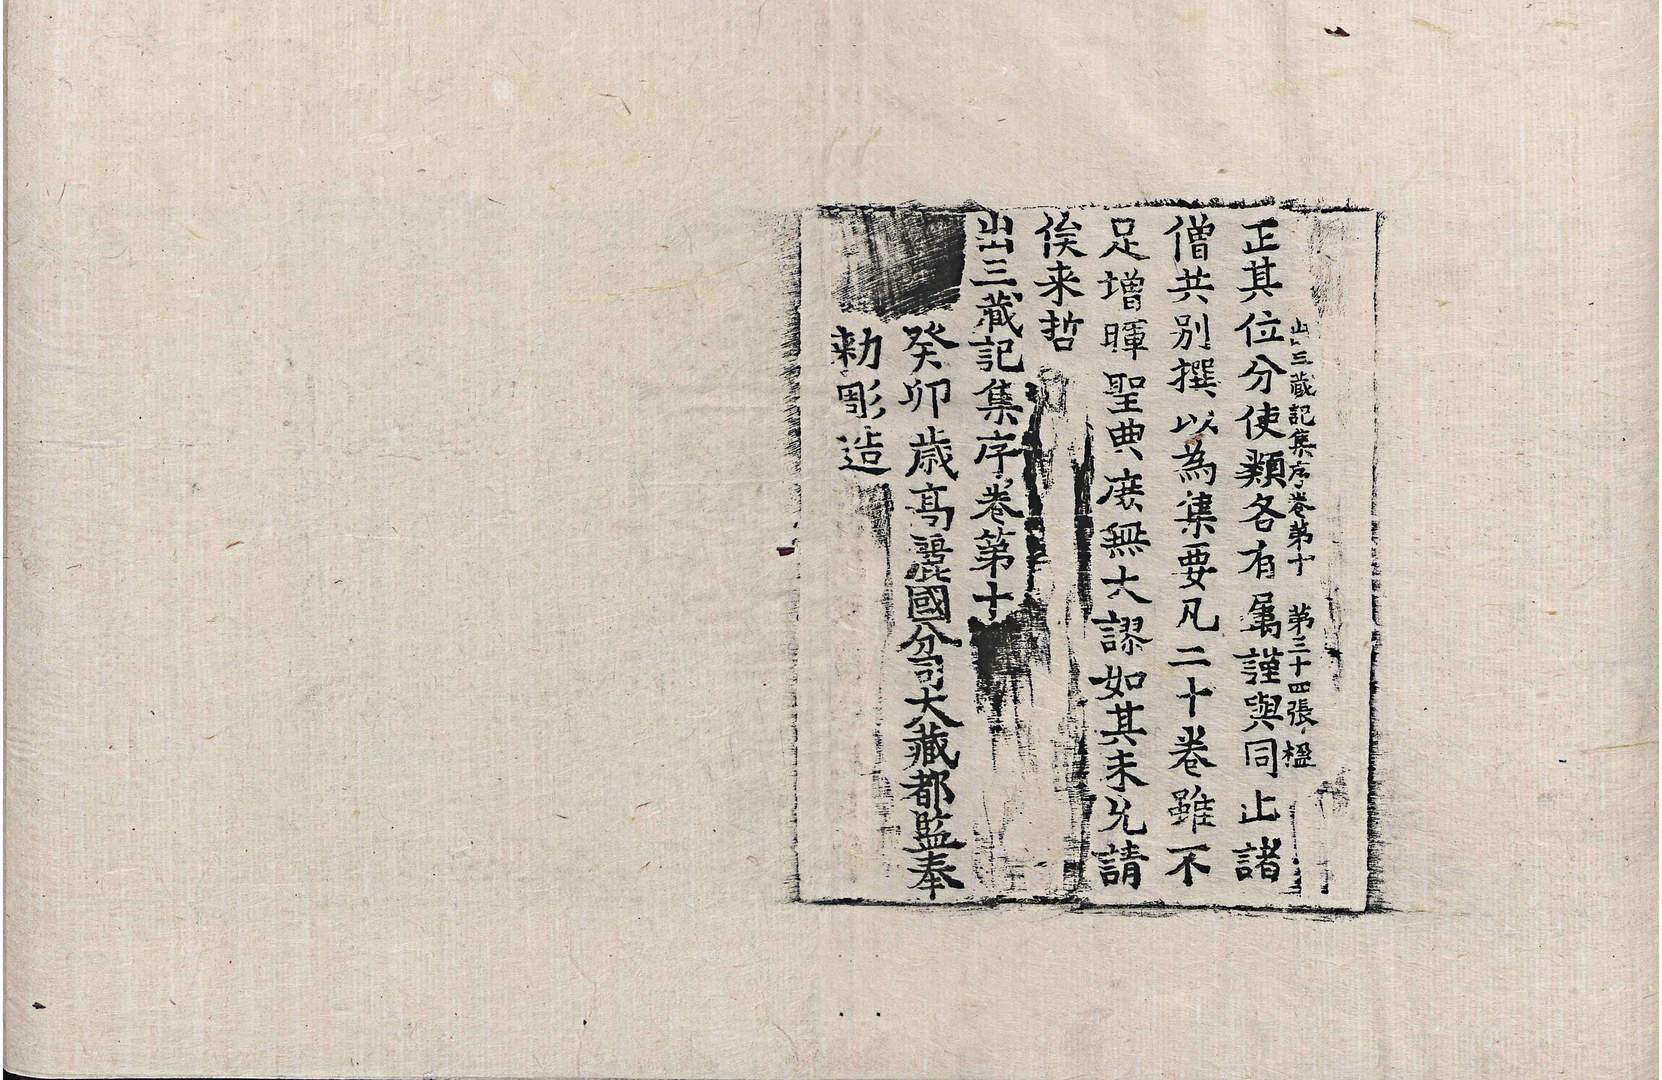 出三藏記集序卷第十 第三十四張 楹
正其位分使類各有属謹與同止諸
僧共別撰以為集要凡二十卷雖不
足增暉聖典庶無大謬如其未允請
俟来哲
出三藏記集序卷第十
癸卯歳高麗國分司大藏都監奉
勅彫造